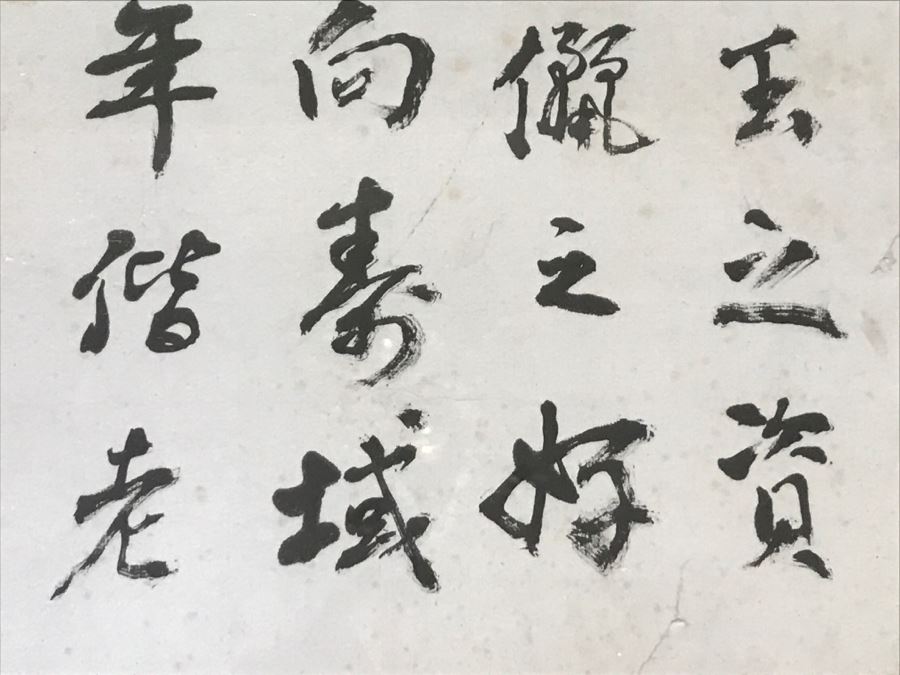 玉之資
儷之好
向壽域
年偕老